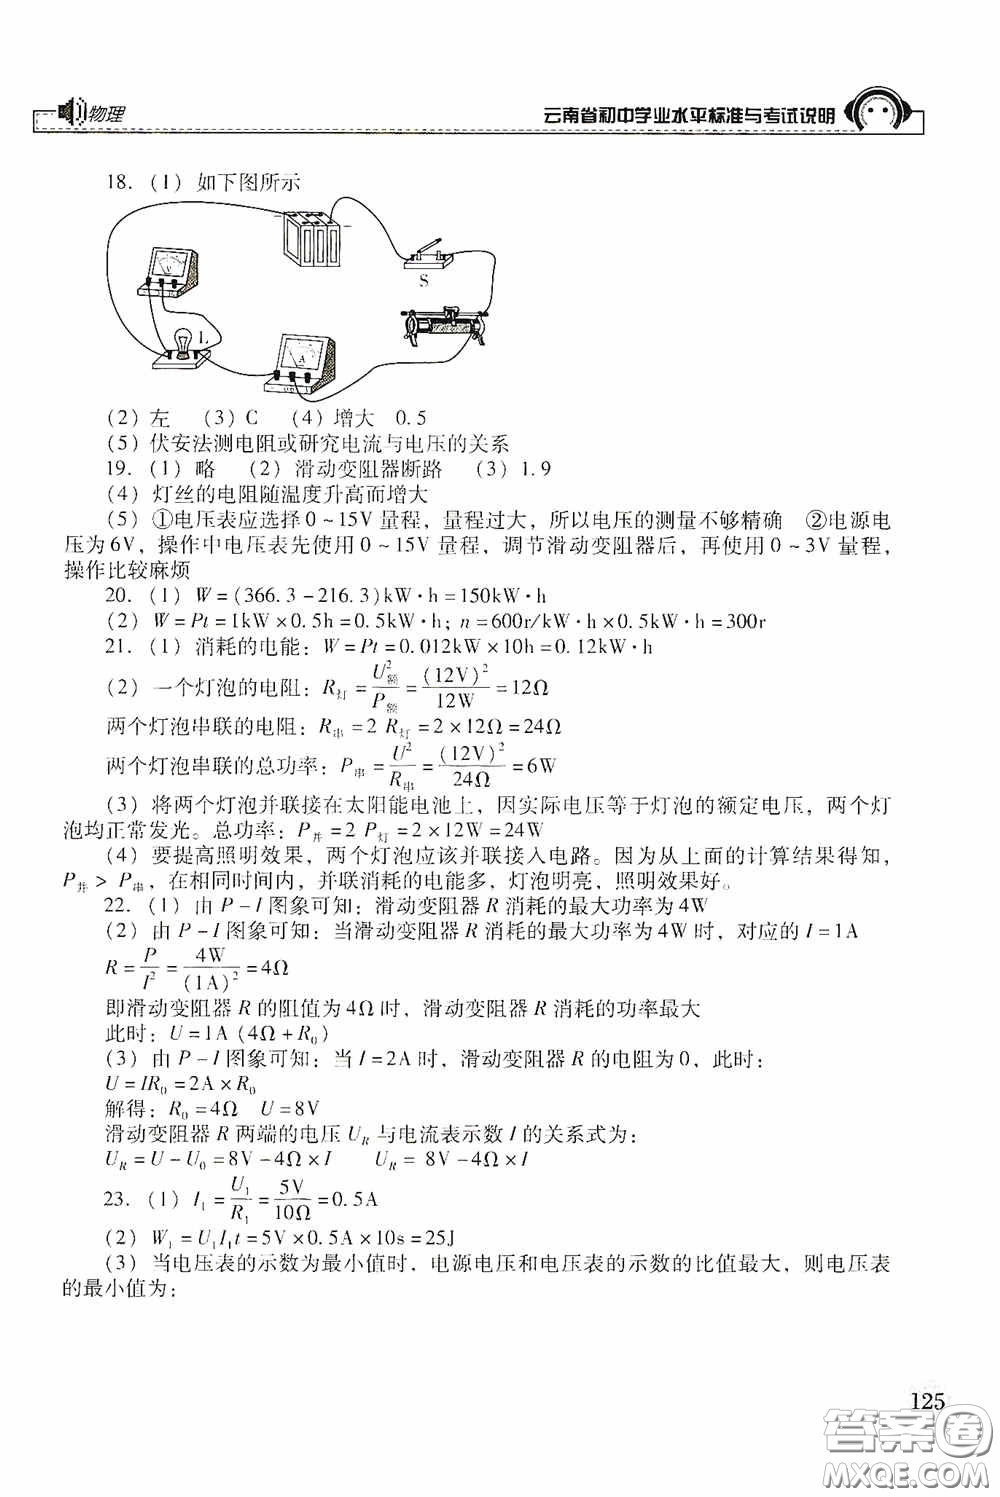 物理
云南省初中学业水平标准与考试说明
18. (1) 如下图所示
V
S
L
A
(2) 左 (3) C (4) 增大 0.5
(5) 伏安法测电阻或研究电流与电压的关系
19. (1) 略 (2) 滑动变阻器断路 (3) 1.9
(4) 灯丝的电阻随温度升高而增大
(5) ①电压表应选择 0~15V 量程，量程过大，所以电压的测量不够精确 ②电源电
压为 6V，操作中电压表先使用 0~15V 量程，调节滑动变阻器后，再使用 0~3V 量程，
操作比较麻烦
20. (1) W=(366.3-216.3)kW·h=150kW·h
(2) W=Pt=1kW×0.5h=0.5kW·h; n=600r/kW·h×0.5kW·h=300r
21. (1) 消耗的电能：W=Pt=0.012kW×10h=0.12kW·h
(2) 一个灯泡的电阻：R灯=U²额/P额=(12V)²/12W=12Ω
两个灯泡串联的电阻：R串=2 R灯=2×12Ω=24Ω
两个灯泡串联的总功率：P串=U²/R串=(12V)²/24Ω=6W
(3) 将两个灯泡并联接在太阳能电池上，因实际电压等于灯泡的额定电压，两个灯
泡均正常发光。总功率：P并=2 P灯=2×12W=24W
(4) 要提高照明效果，两个灯泡应该并联接入电路。因为从上面的计算结果得知，
P并> P串，在相同时间内，并联消耗的电能多，灯泡明亮，照明效果好。
22. (1) 由 P-I 图象可知：滑动变阻器 R 消耗的最大功率为 4W
(2) 由 P-I 图象可知：当滑动变阻器 R 消耗的最大功率为 4W 时，对应的 I=1A
R=P/I²=4W/(1A)²=4Ω
即滑动变阻器 R 的阻值为 4Ω 时，滑动变阻器 R 消耗的功率最大
此时：U=1A (4Ω+R₀)
(3) 由 P-I 图象可知：当 I=2A 时，滑动变阻器 R 的电阻为 0，此时：
U=IR₀=2A×R₀
解得：R₀=4Ω U=8V
滑动变阻器 R 两端的电压 U_R 与电流表示数 I 的关系式为：
U_R=U-U₀=8V-4Ω×I U_R= 8V-4Ω×I
23. (1) I₁=U₁/R₁=5V/10Ω=0.5A
(2) W₁=U₁I₁t=5V×0.5A×10s=25J
(3) 当电压表的示数为最小值时，电源电压和电压表的示数的比值最大，则电压表
的最小值为：
125
答案圈
MXQE.COM